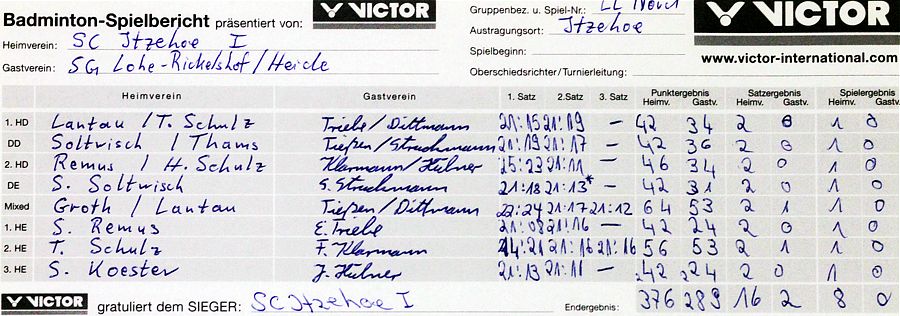 Badminton-Spielbericht präsentiert von: VICTOR Gruppenbez. u. Spiel-Nr.: LL Nord VICTOR
Heimverein: SC Itzehoe I Austragungsort: Itzehoe
Gastverein: SG Lohe-Rickelshof/Heide Spielbeginn: www.victor-international.com
Oberschiedsrichter/Turnierleitung:
Heimverein Gastverein 1. Satz 2.Satz 3. Satz Punktergebnis Satzergebnis Spielergebnis
Heimv. Gastv. Heimv. Gastv. Heimv. Gastv.
1. HD Lantau / T. Schulz Triebe / Dittmann 21:15 21:19 – 42 34 2 0 1 0
DD Soltwisch / Thams Tießen / Struchmann 21:19 21:17 – 42 36 2 0 1 0
2. HD Remus / H. Schulz Klarmann / Hübner 25:23 21:11 – 46 34 2 0 1 0
DE S. Soltwisch S. Struchmann 21:18 21:13* – 42 31 2 0 1 0
Mixed Groth / Lantau Tießen / Dittmann 22:24 21:17 21:12 64 53 2 1 1 0
1. HE S. Remus E. Triebe 21:08 21:16 – 42 24 2 0 1 0
2. HE T. Schulz F. Klarmann 14:21 21:16 21:16 56 53 2 1 1 0
3. HE S. Koester J. Hübner 21:13 21:11 – 42 24 2 0 1 0
VICTOR gratuliert dem SIEGER: SC Itzehoe I Endergebnis: 376 289 16 2 8 0